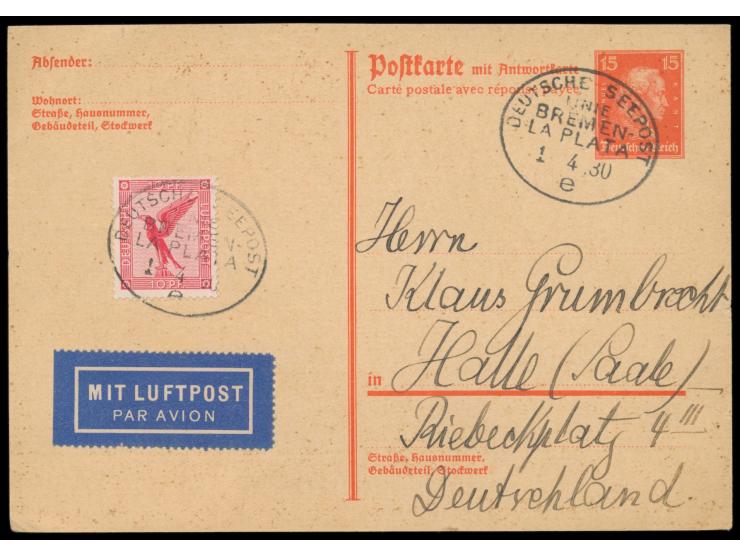 Absender:
Wohnort:
Straße, Hausnummer,
Gebäudeteil, Stockwerk
Postkarte mit Antwortkarte
Carte postale avec réponse payée
15 15
KANT
Deutsches Reich
DEUTSCHE SEEPOST
LINIE
BREMEN-
LA PLATA
1 4 30
e
10 PF
DEUTSCHE LUFTPOST
10 PF.
DEUTSCHE SEEPOST
BREMEN-
LA PLATA
1 4
e
MIT LUFTPOST
PAR AVION
Herrn
Klaus Grumbrecht
in Halle (Saale)
Riebeckplatz 4 III
Straße, Hausnummer,
Gebäudeteil, Stockwerk
Deutschland.